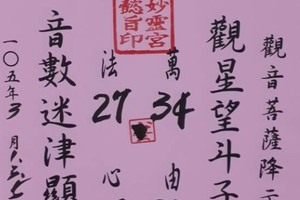 觀音菩薩降示
觀星望斗子
萬 由
34
妙靈宮
懿旨印
法 心
27
音數迷津顯
一〇五年3月